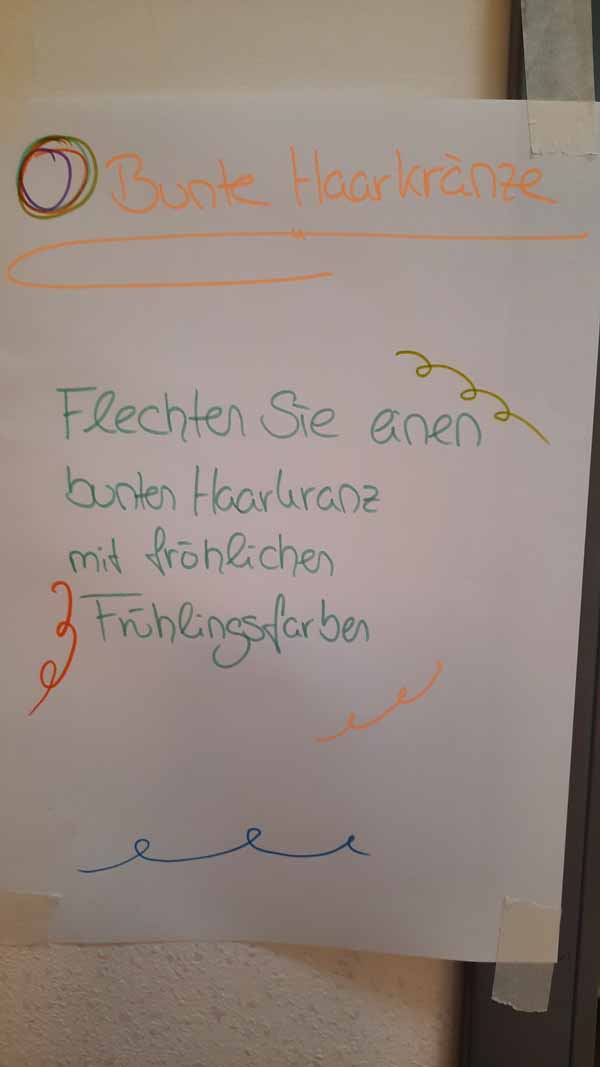 Bunte Haarkränze
Flechten Sie einen
bunten Haarkranz
mit fröhlichen
Frühlingsfarben